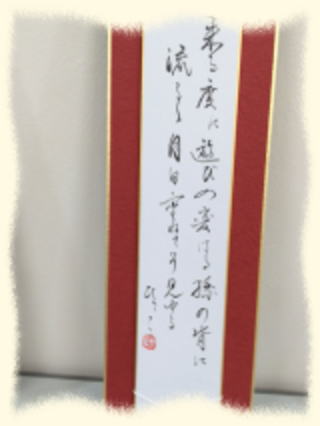 来る度に遊びの変はる孫の背に
流るる月日重ねて見ゆる